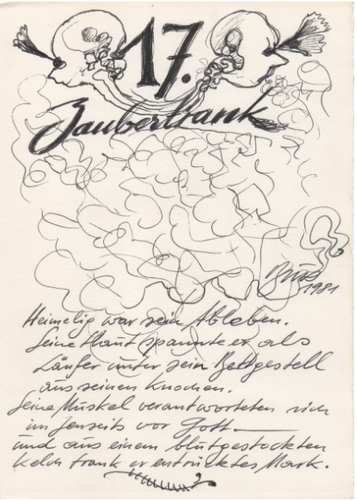 17.
Zaubertrank
1981
Heimelig war sein Ableben.
Seine Haut spannte er als
Läufer unter sein Bettgestell
aus seinen Knochen.
Seine Muskel verantworteten sich
im Jenseits vor Gott —
und aus einem blutgestockten
Kelch trank er entrücktes Mark.